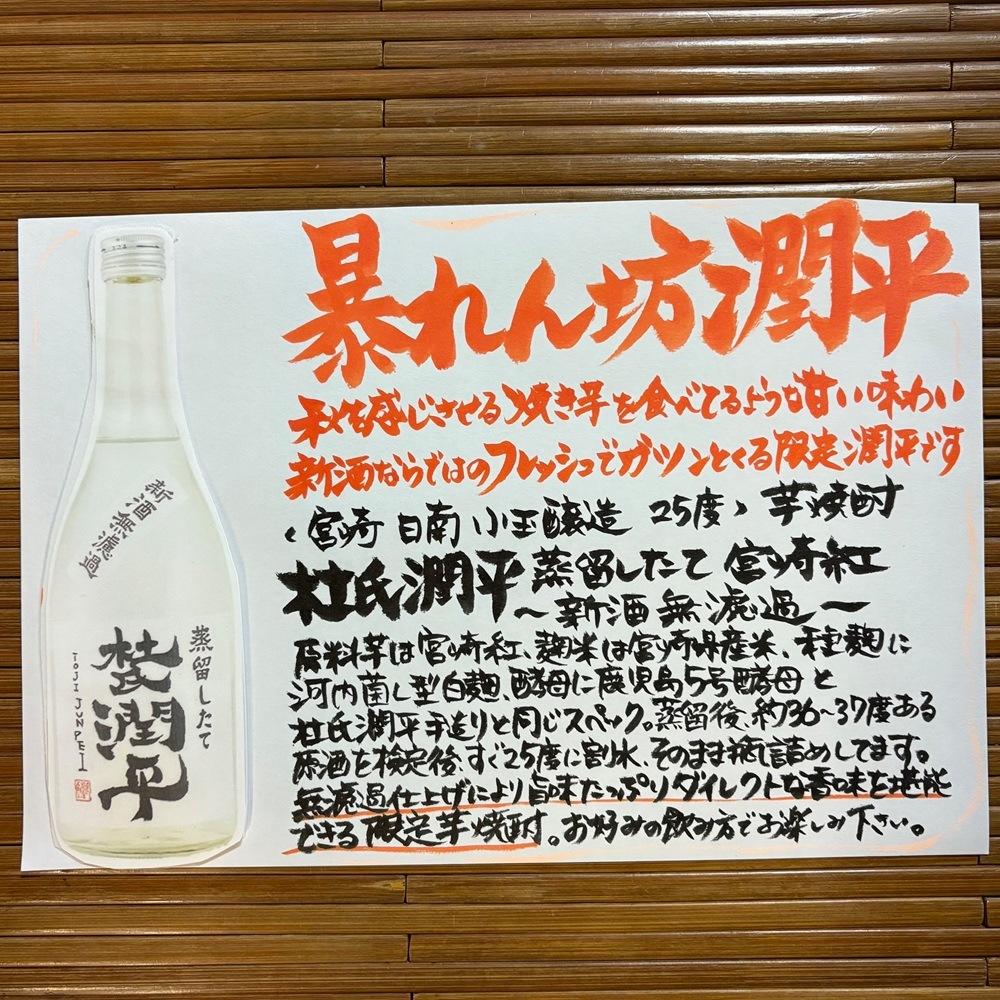 暴れん坊潤平
秋を感じさせる焼き芋を食べてるような甘い味わい
新酒ならではのフレッシュでガツンとくる限定潤平です
〈宮崎 日南 小玉醸造 25度〉芋焼酎
杜氏潤平 蒸留したて 宮崎紅
〜新酒無濾過〜
原料芋は宮崎紅、麹米は宮崎県産米、種麹に
河内菌L型白麹、酵母に鹿児島5号酵母と
杜氏潤平手造りと同じスペック。蒸留後、約36〜37度ある
原酒を検定後、すぐ25度に割水、そのまま瓶詰めしてます。
無濾過仕上げにより旨味たっぷりダイレクトな香味を堪能
できる限定芋焼酎。お好みの飲み方でお楽しみ下さい。
新酒無濾過
蒸留したて
杜氏潤平
TOJI JUNPEI